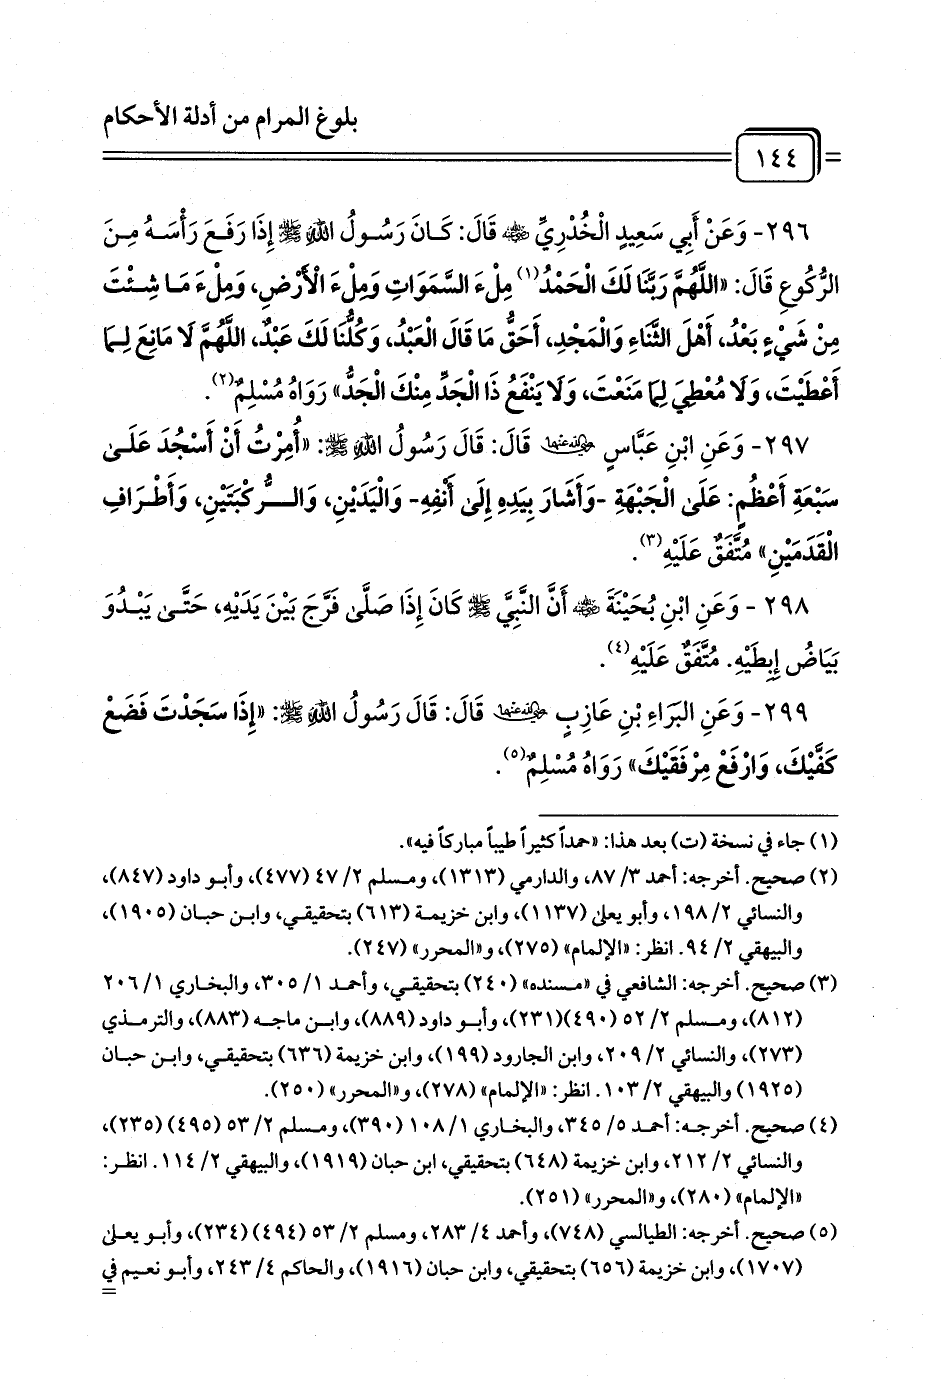 بلوغ المرام من أدلة الأحكام
١٤٤
٢٩٦- وَعَنْ أَبِي سَعِيدٍ الْخُدْرِيِّ ﵁ قَالَ: كَانَ رَسُولُ اللهِ ﷺ إِذَا رَفَعَ رَأْسَهُ مِنَ
الرُّكُوعِ قَالَ: «اللَّهُمَّ رَبَّنَا لَكَ الْحَمْدُ(١) مِلْءَ السَّمَوَاتِ وَمِلْءَ الْأَرْضِ، وَمِلْءَ مَا شِئْتَ
مِنْ شَيْءٍ بَعْدُ، أَهْلَ الثَّنَاءِ وَالْمَجْدِ، أَحَقُّ مَا قَالَ الْعَبْدُ، وَكُلُّنَا لَكَ عَبْدٌ، اللَّهُمَّ لَا مَانِعَ لِمَا
أَعْطَيْتَ، وَلَا مُعْطِيَ لِمَا مَنَعْتَ، وَلَا يَنْفَعُ ذَا الْجَدِّ مِنْكَ الْجَدُّ» رَوَاهُ مُسْلِمٌ(٢).
٢٩٧- وَعَنِ ابْنِ عَبَّاسٍ ﵄ قَالَ: قَالَ رَسُولُ اللهِ ﷺ: «أُمِرْتُ أَنْ أَسْجُدَ عَلَىٰ
سَبْعَةِ أَعْظُمٍ: عَلَىٰ الْجَبْهَةِ -وَأَشَارَ بِيَدِهِ إِلَىٰ أَنْفِهِ- وَالْيَدَيْنِ، وَالرُّكْبَتَيْنِ، وَأَطْرَافِ
الْقَدَمَيْنِ» مُتَّفَقٌ عَلَيْهِ(٣).
٢٩٨ - وَعَنِ ابْنِ بُحَيْنَةَ ﵁ أَنَّ النَّبِيَّ ﷺ كَانَ إِذَا صَلَّىٰ فَرَّجَ بَيْنَ يَدَيْهِ، حَتَّىٰ يَبْدُوَ
بَيَاضُ إِبِطَيْهِ. مُتَّفَقٌ عَلَيْهِ(٤).
٢٩٩- وَعَنِ الْبَرَاءِ بْنِ عَازِبٍ ﵄ قَالَ: قَالَ رَسُولُ اللهِ ﷺ: «إِذَا سَجَدْتَ فَضَعْ
كَفَّيْكَ، وَارْفَعْ مِرْفَقَيْكَ» رَوَاهُ مُسْلِمٌ(٥).
(١) جاء في نسخة (ت) بعد هذا: «حمداً كثيراً طيباً مباركاً فيه».
(٢) صحيح. أخرجه: أحمد ٣/ ٨٧، والدارمي (١٣١٣)، ومسلم ٢/ ٤٧ (٤٧٧)، وأبو داود (٨٤٧)،
والنسائي ٢/ ١٩٨، وأبو يعلى (١١٣٧)، وابن خزيمة (٦١٣) بتحقيقي، وابن حبان (١٩٠٥)،
والبيهقي ٢/ ٩٤. انظر: «الإلمام» (٢٧٥)، و«المحرر» (٢٤٧).
(٣) صحيح. أخرجه: الشافعي في «مسنده» (٢٤٠) بتحقيقي، وأحمد ١/ ٣٠٥، والبخاري ١/ ٢٠٦
(٨١٢)، ومسلم ٢/ ٥٢ (٤٩٠)(٢٣١)، وأبو داود (٨٨٩)، وابن ماجه (٨٨٣)، والترمذي
(٢٧٣)، والنسائي ٢/ ٢٠٩، وابن الجارود (١٩٩)، وابن خزيمة (٦٣٦) بتحقيقي، وابن حبان
(١٩٢٥) والبيهقي ٢/ ١٠٣. انظر: «الإلمام» (٢٧٨)، و«المحرر» (٢٥٠).
(٤) صحيح. أخرجه: أحمد ٥/ ٣٤٥، والبخاري ١/ ١٠٨ (٣٩٠)، ومسلم ٢/ ٥٣ (٤٩٥) (٢٣٥)،
والنسائي ٢/ ٢١٢، وابن خزيمة (٦٤٨) بتحقيقي، ابن حبان (١٩١٩)، والبيهقي ٢/ ١١٤. انظر:
«الإلمام» (٢٨٠)، و«المحرر» (٢٥١).
(٥) صحيح. أخرجه: الطيالسي (٧٤٨)، وأحمد ٤/ ٢٨٣، ومسلم ٢/ ٥٣ (٤٩٤) (٢٣٤)، وأبو يعلى
(١٧٠٧)، وابن خزيمة (٦٥٦) بتحقيقي، وابن حبان (١٩١٦)، والحاكم ٤/ ٢٤٣، وأبو نعيم في
=